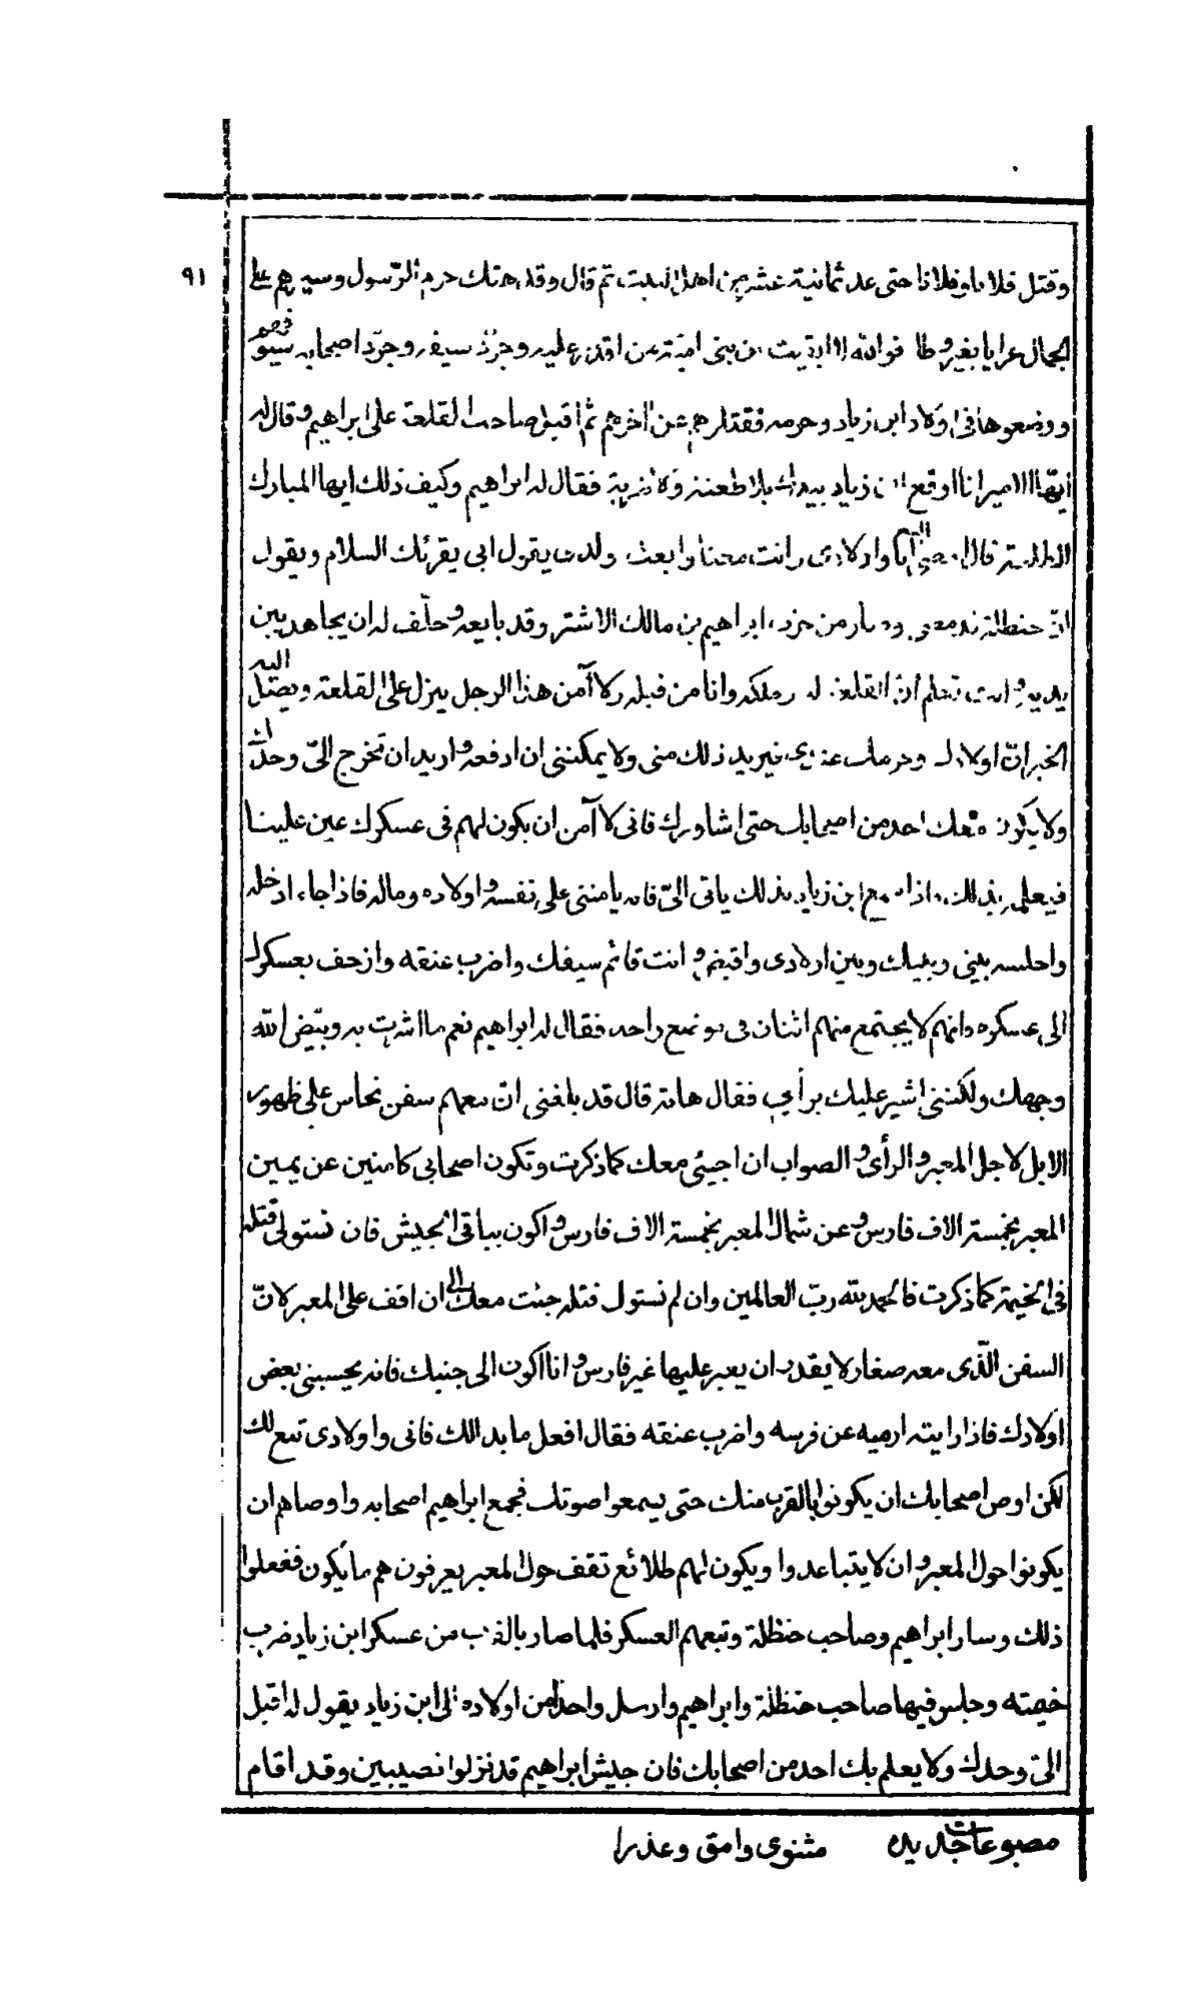 ٩١
وقتل فلانا وفلانا حتى عد ثمانية عشر من اهل البيت ثم قال وقد هتك حرم الرّسول وسيرهم على
الجمال عرايا بغير وطا فوالله لا ابقيت من بنى اميّة من اقدر عليه وجرّد سيفه وجرّد اصحابه سيوفهم
ووضعوها فى اولاد ابن زياد وحرمه فقتلوهم عن اخرهم ثم اقبل صاحب القلعة على ابراهيم وقال له
ايّها الامير انا اوقع ابن زياد بيدك بلا طعنة ولا ضربة فقال له ابراهيم وكيف ذلك ايها المبارك
الطلعة قال انا واولادى وانت معنا وابعث ولدى يقول ابى يقرئك السلام ويقول
انّ حنظلة وصار من حزب ابراهيم بن مالك الاشتر وقد بايعه وحلف له ان يجاهد بين
يديه وانت تعلم انّ القلعة له وملكه وانا من قبله ولا آمن هذا الرجل ينزل على القلعة ويصل اليه
الخبر انّ اولادك وحرمك عندى فيريد ذلك منى ولا يمكننى ان ادفعه واريد ان تخرج الىّ وحدك
ولا يكون معك احد من اصحابك حتى اشاورك فانى لا آمن ان يكون لهم فى عسكرك عين علينا
فيعلم بذلك واذا سمع ابن زياد بذلك ياتى الىّ فانه يامننى على نفسه واولاده وماله فاذا جاء ادخله
واجلسه بينى وبينك وبين اولادى واقبض انت قائم سيفك واضرب عنقه وازحف بعسكرك
الى عسكره فانهم لا يجتمع منهم اثنان فى موضع واحد فقال له ابراهيم نعم ما اشرت به وبيّض الله
وجهك ولكننى اشير عليك برأيى فقال هاته قال قد بلغنى انّ معهم سفن نحاس على ظهور
الابل لاجل المعبر والرأى والصواب ان اجيئ معك كما ذكرت وتكون اصحابى كامنين عن يمين
المعبر بخمسة الاف فارس وعن شمال المعبر بخمسة الاف فارس واكون بباقى الجيش فان نستولى قتله
فى الخيمة كما ذكرت فالحمد لله ربّ العالمين وان لم نستول قتله جئت معك الى ان اقف على المعبر لانّ
السفن الّذى معه صغار لا يقدر ان يعبر عليها غير فارس وانا اكون الى جنبك فانه يحسبنى بعض
اولادك فاذا رايته ارميه عن فرسه واضرب عنقه فقال افعل ما بدالك فانى واولادى تبع لك
لكن اوص اصحابك ان يكونوا بالقرب منك حتى يسمعوا صوتك فجمع ابراهيم اصحابه واوصاهم ان
يكونوا حول المعبر وان لا يتباعدوا ويكون لهم طلائع تقف حول المعبر يعرفون هم ما يكون ففعلوا
ذلك وسار ابراهيم وصاحب حنظلة وتبعهم العسكر فلما صار بالقرب من عسكر ابن زياد ضرب
خيمته وجلس فيها صاحب حنظلة وابراهيم وارسل واحدا من اولاده الى ابن زياد يقول له اقبل
الىّ وحدك ولا يعلم بك احد من اصحابك فان جيش ابراهيم قد نزلوا نصيبين وقد اقام
مصبوعات جديده مثنوى وامق وعذرا